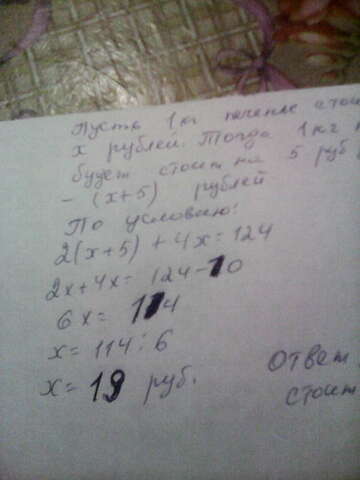 Пусть 1 кг печенье
х рублей. Тогда 1 кг
будет стоит на 5 руб
- (х+5) рублей
По условию:
2(х+5) + 4х = 124
2х+4х = 124-10
6х = 114
х = 114:6
х = 19 руб.
Ответ
стоит